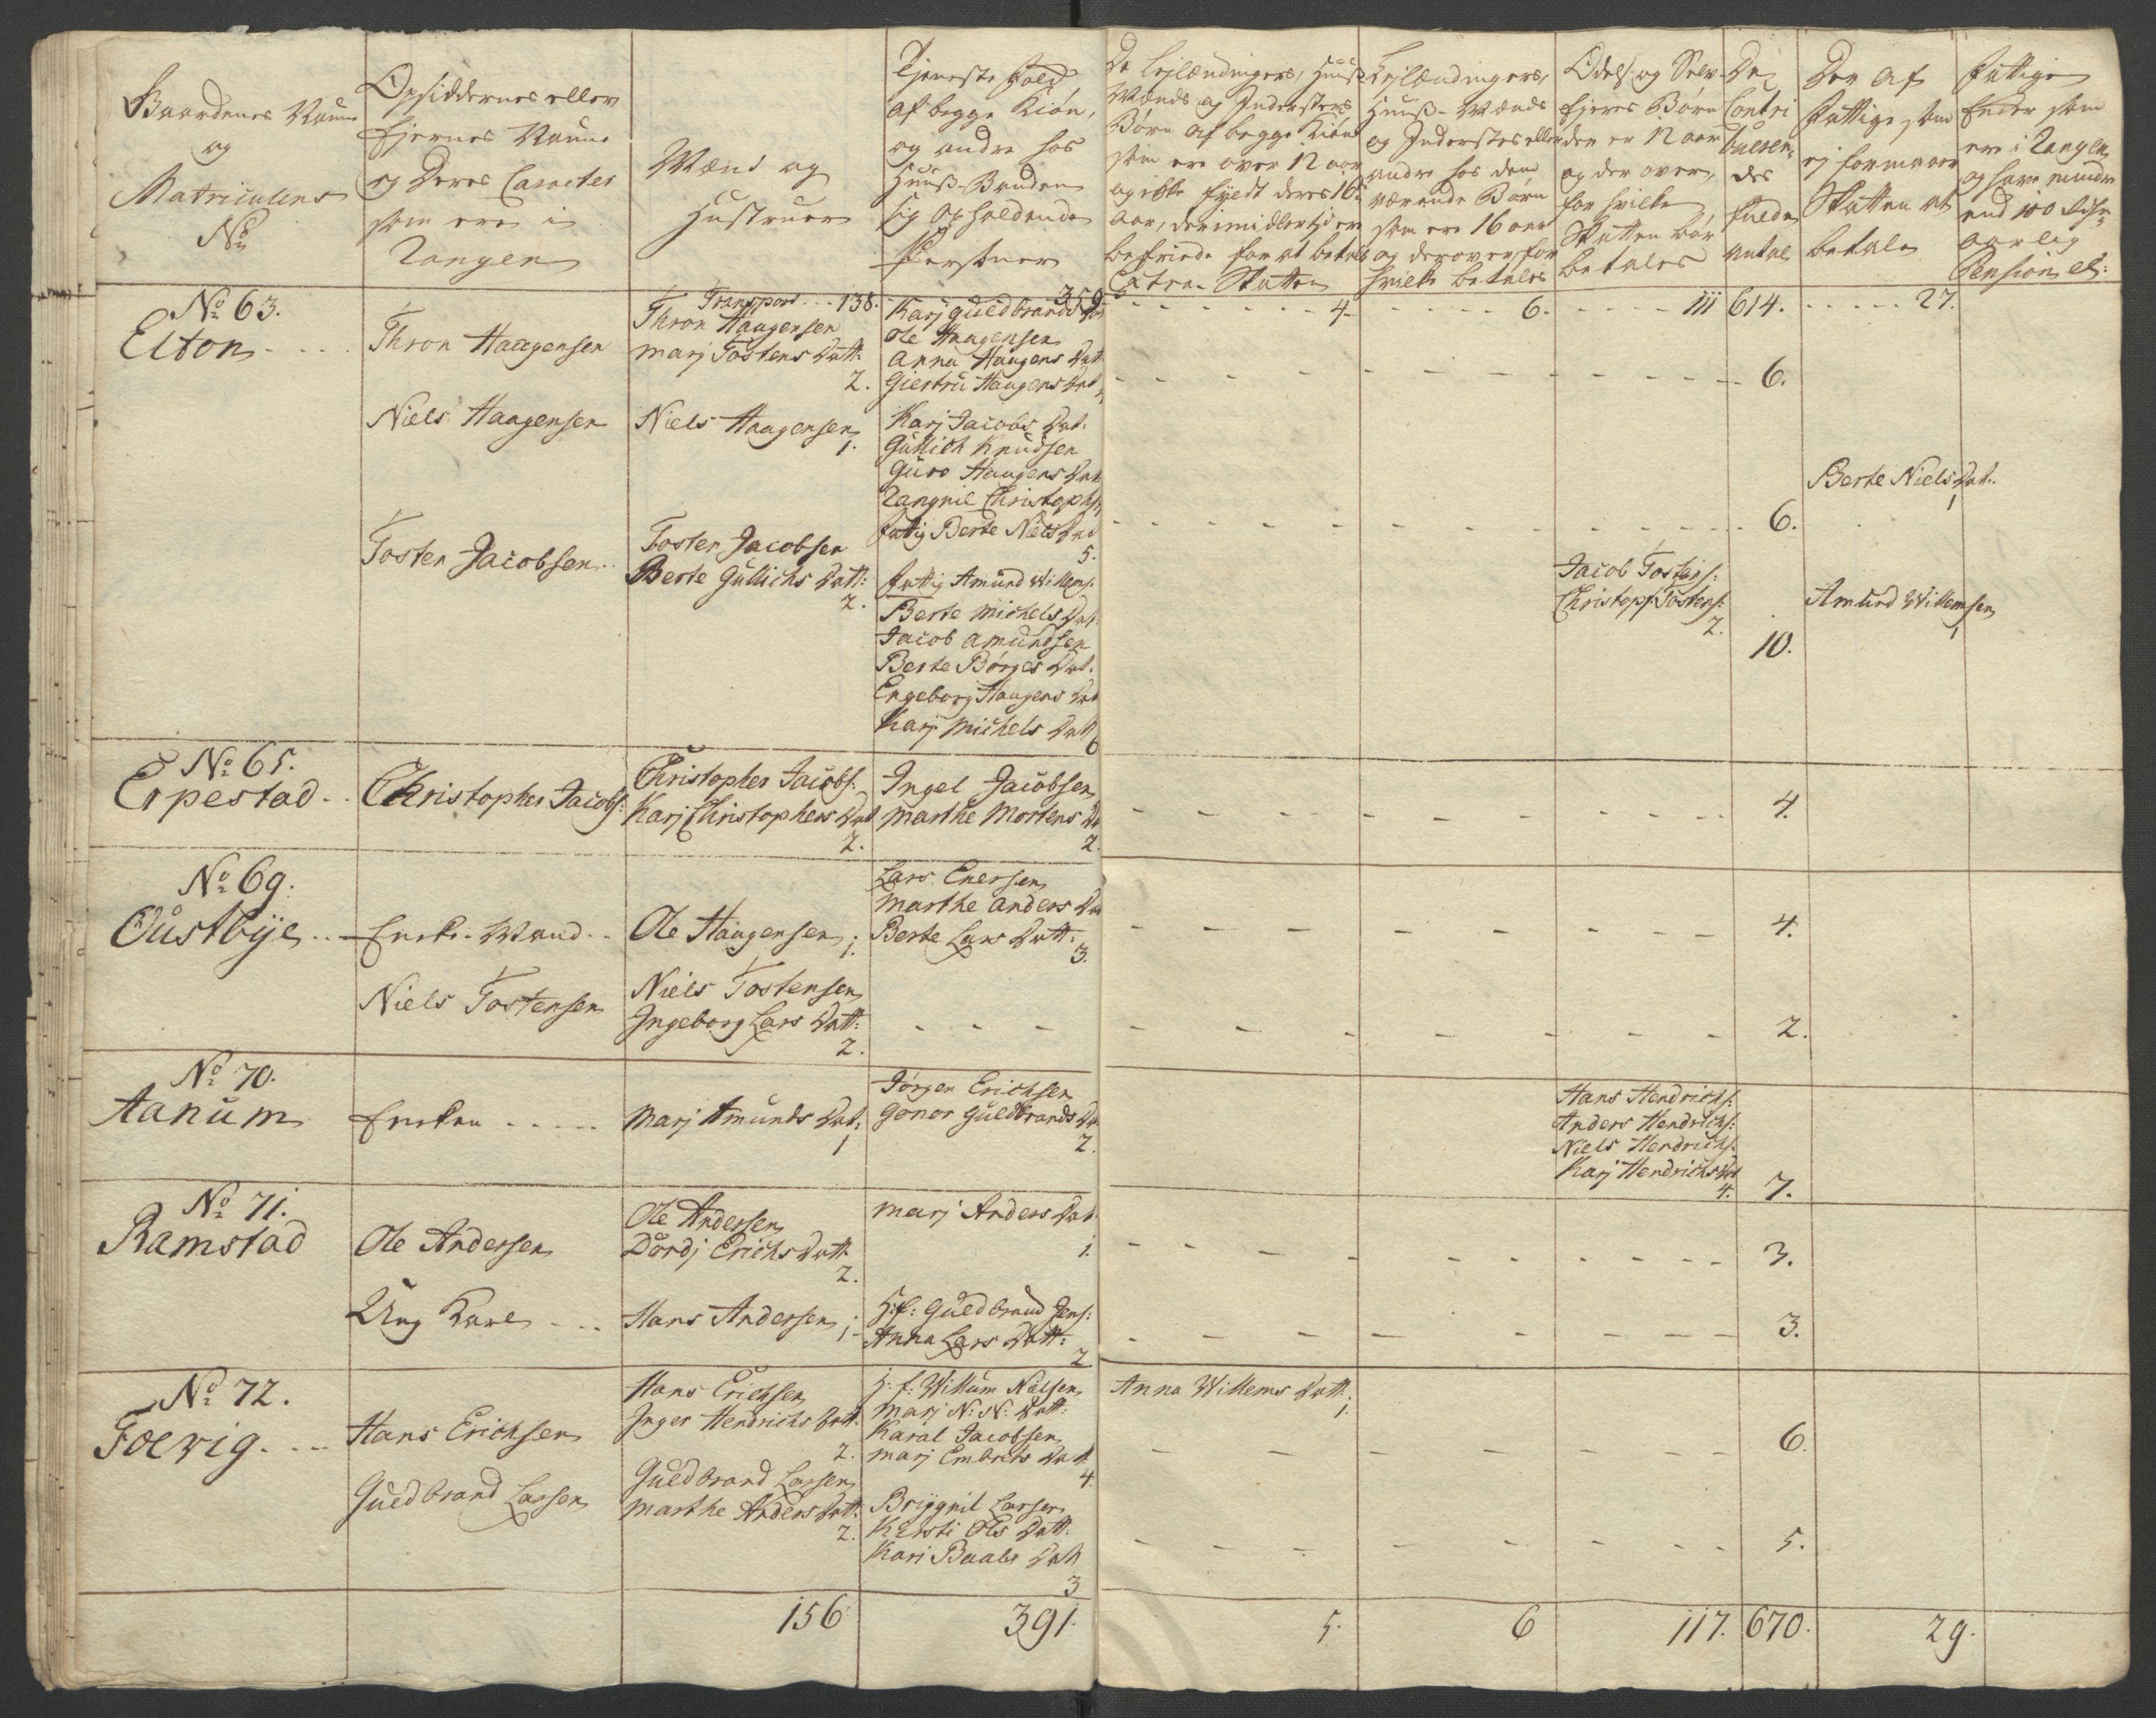 Gaardenes Naune
og
Matriculens
No
Opsiddernes eller
Ejernes Naune
og deres Caracter
som ere i
Rangen
Mænd og
Hustruer
Tjeneste Folk
af begge Kiøn,
og andre hos
Huuß-Bonden
sig opholdende
Persohner
De Lejlændingers, Huuß
Mænds og Inderstes
Børn af begge Kiøn
som ere over 12 aar
og ikke fyldt deres 16de
aar, der imidlertid ere
befriede for at betale
Extra-Skatten
Lejlændingers,
Huuß-Mænds
og Inderstes eller
andre hos dem
værende Børn
som ere 16 aar
og derover, for
hvilke betales
Odels og Selv-
Ejeres Børn
der er 12 aar
og der over,
for hvilke
Skatten bør
betales
De
Contri
bueren-
des
fulde
Antal
Der af
Fattige som
ej formaaer
Skatten at
betale
Fattige
Enker som
ere i Rangen
og have mindre
end 100 Rdlr
aarlig
Pension etc:
Transport - - - 138. 359 - - - - - 4 - - - - - 6. - - - - - 111 614. - - - - - 27.
No 63.
Elton - - - -
Thron Haagensen
Thron Haagensen
Marj Tostens Datt:
2.
Karj Guldbrands Dat
Ole Haagensen
Anna Haagens Dat
Giertru Haagens Dat
- - - - - - - - - - 6.
Niels Haagensen
Niels Haagensen
1.
Karj Jacobs Dat.
Gullich Knudsen
Guro Haagens Dat
Rangnil Christophs
Fattig Berte Niels Dat
5.
- - - - - - - - - - 6.
Berte Niels Dat.
1
Tosten Jacobsen
Tosten Jacobsen
Berte Gullichs Datt:
2.
Fattig Amund Willems:
Berte Michels Dat
Jacob Amundsen
Berte Børges Dat.
Engeborg Haagens Dat
Karj Michels Datt
6
Jacob Tostens:
Christoph Tostens:
2.
10.
Amund Willemsen
1
No 65.
Erpestad - -
Christopher Jacobs:
Christopher Jacobs:
Karj Christophers Dat
2.
Ingel Jacobsen
Marthe Mortens Dat
2.
- - - - - - - - - - 4.
No 69.
Oustbye - -
Enke-Mand - -
Ole Haagensen
1.
Lars Enersen
Marthe Anders Dat
Berte Lars Datt:
3.
- - - - - - - - 4.
Niels Tostensen
Niels Tostensen
Ingeborg Lars Datt:
2.
- - - - - - - - - - 2.
No 70.
Aanum
Enken - - - - -
Marj Amunds Dat:
1
Jørgen Erichsen
Gonor Guldbrands Dat
2.
Hans Hendrichs:
Anders Hendrichs:
Niels Hendrichs:
Karj Hendrichs Dat
4.
7.
No 71.
Ramstad
Ole Andersen
Ole Andersen
Dordj Erichs Datt
2.
Marj Anders Dat.
1.
- - - - - - - - - 3.
Ung Karl - - -
Hans Andersen
1
H:f: Guldbrand Jens:
Anna Lars Datt:
2
- - - - - - - - 3.
No 72.
Foevig. - - -
Hans Erichsen
Hans Erichsen
Inger Hendrichs Datt.
2.
H:f: Willum Nielsen
Marj N: N: Datt:
Karal Jacobsen
Marj Embrets Dat
4.
Anna Willems Datt:
1.
- - - - - - - 6.
Guldbrand Larsen
Guldbrand Larsen
Marthe Anders Datt:
2.
Bryggnil Larsen
Kirsti Ols Datt:
Kari Baals Datt
3
- - - - - - - - 5.
156 391. 5. 6 117. 670. 29.